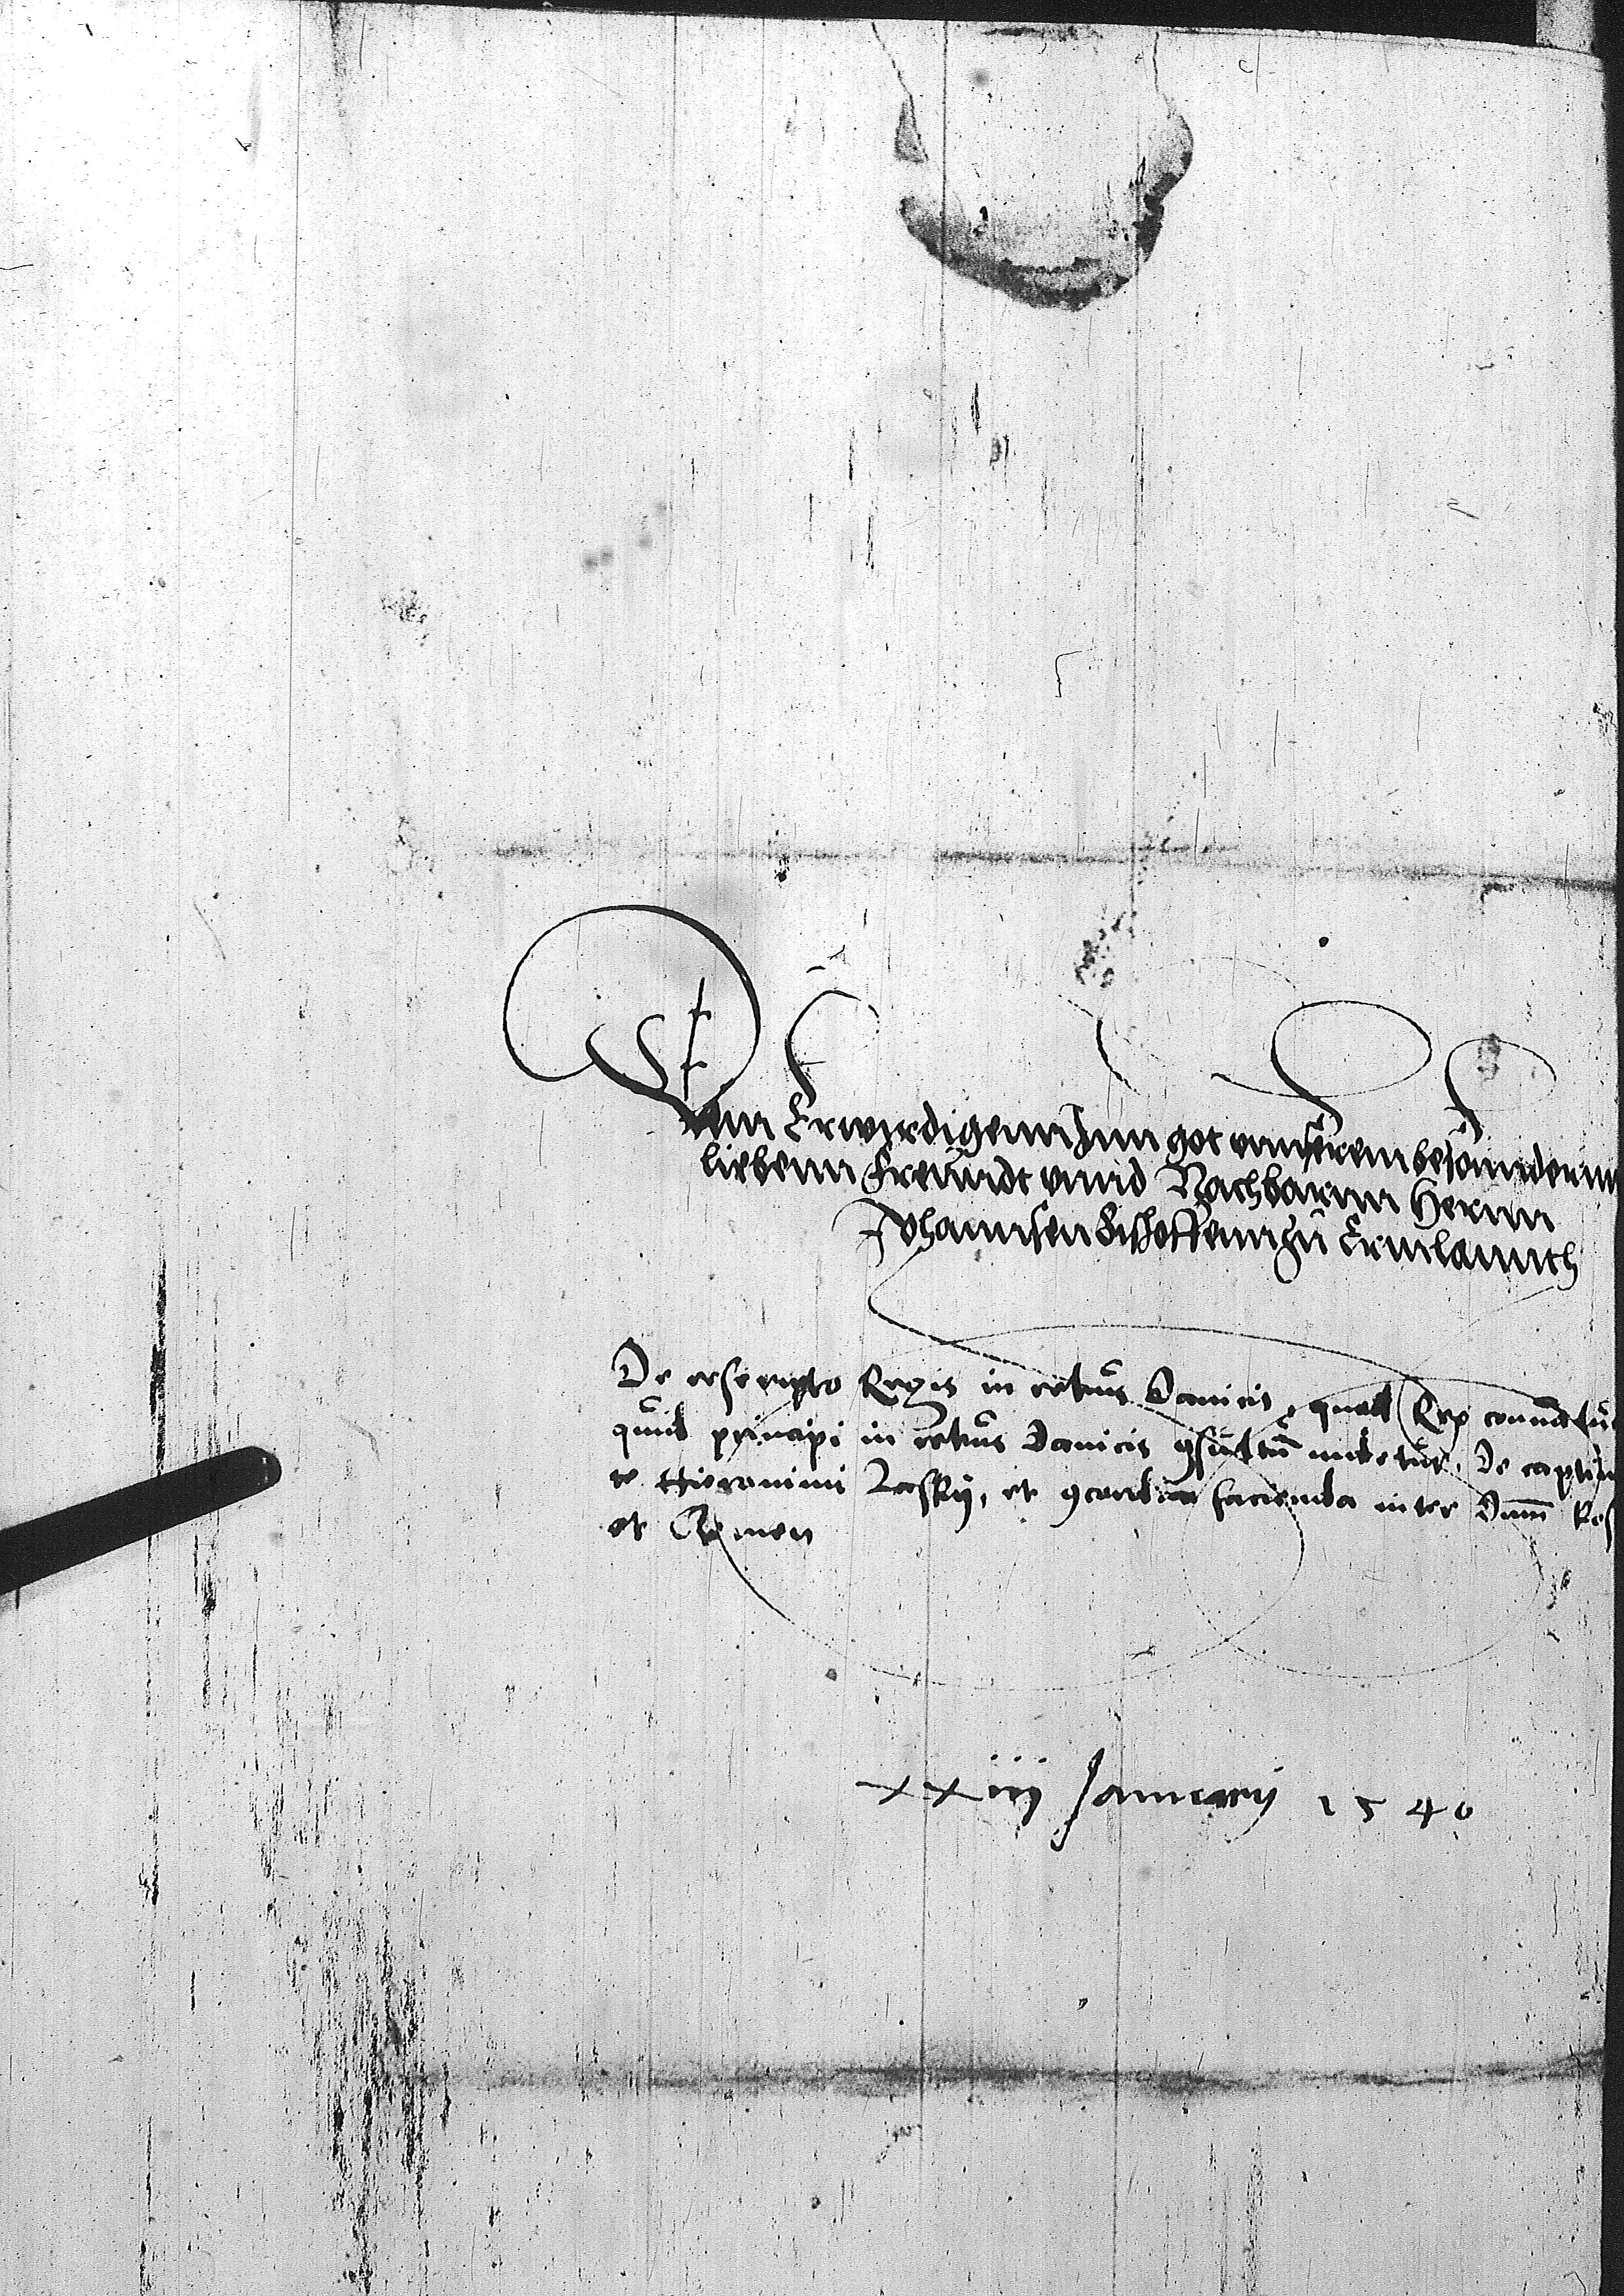 Dem Erwirdigenn Inn got vnnserem besonndernn
liebenn Freundt vnnd Nachbarnn Hernn
Johannsen Bischoffenn zu Ermlannth
De rescripto Regis in rebus Danicis, Rex
quid principi in rebus Danicis videtur, De
te Hieronimi Lasky, et facienda inter
et
xxiij Januarij 1540